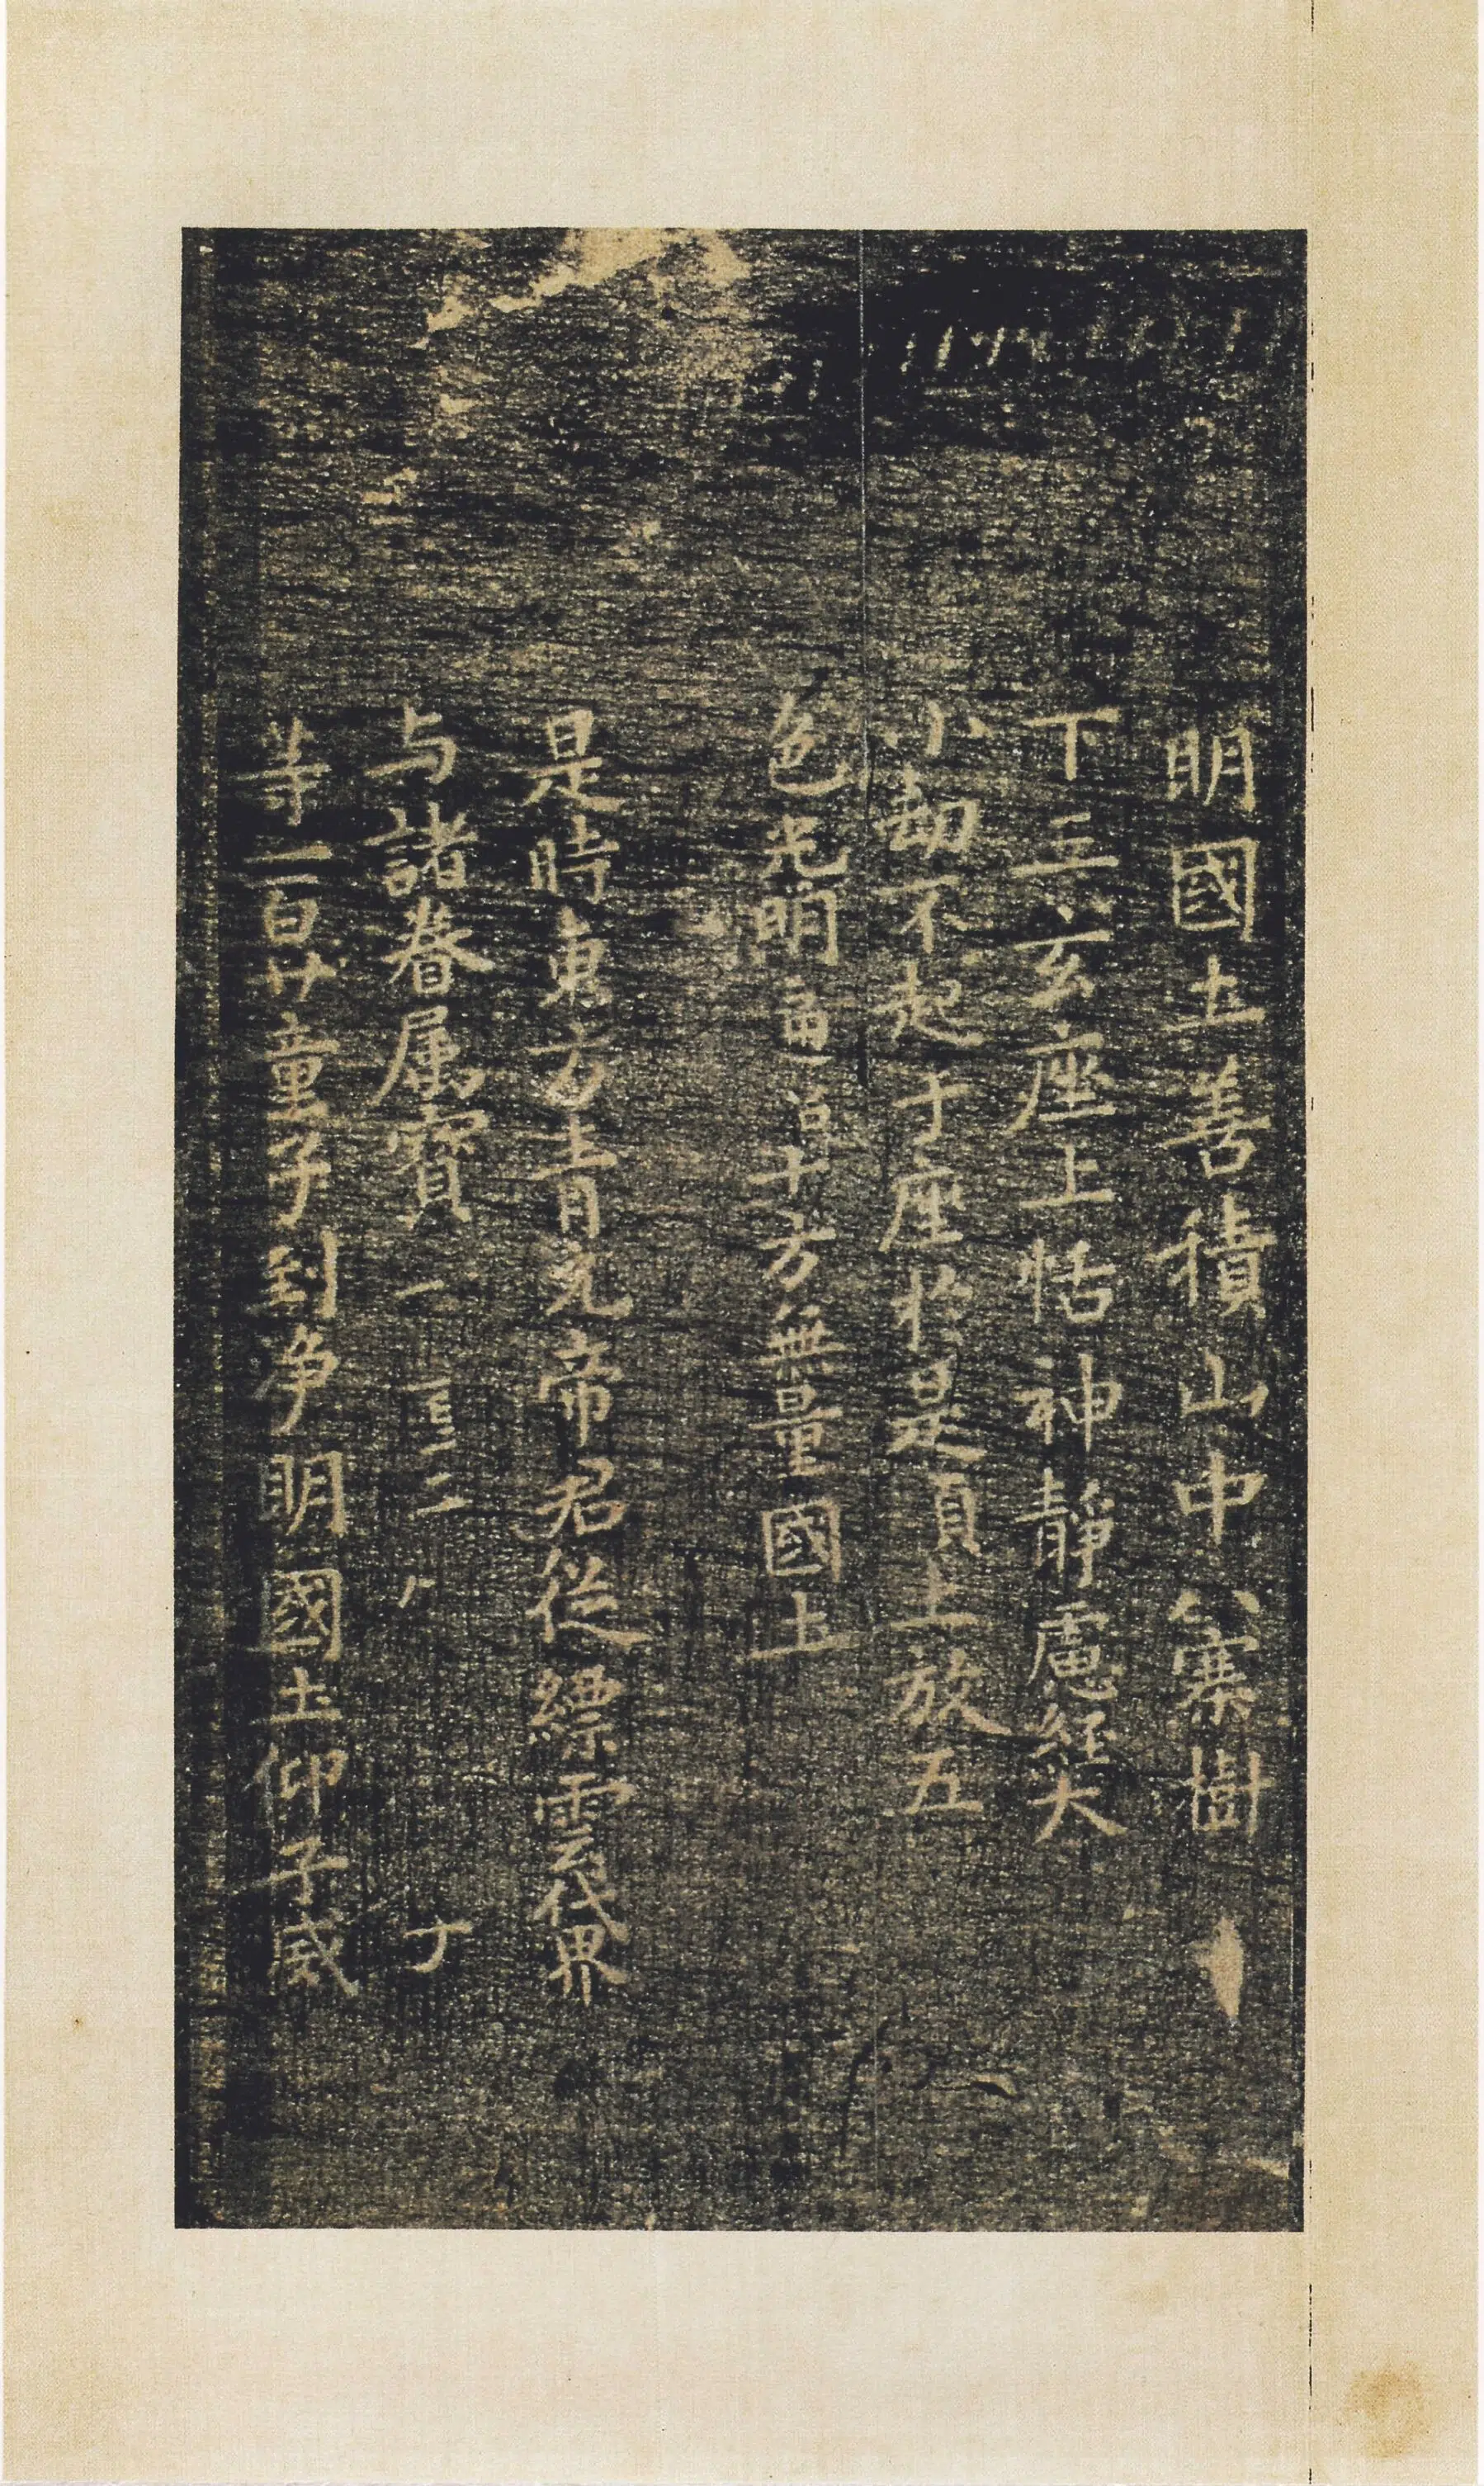 明國土善積山中八騫樹
下三玄座上恬神靜慮經大
小劫不起于座於是頂上放五
色光明通十方無量國土
是時東方青元帝君從縹雲代界
与諸眷属寶
等一百廿童子到淨明國土仰子威